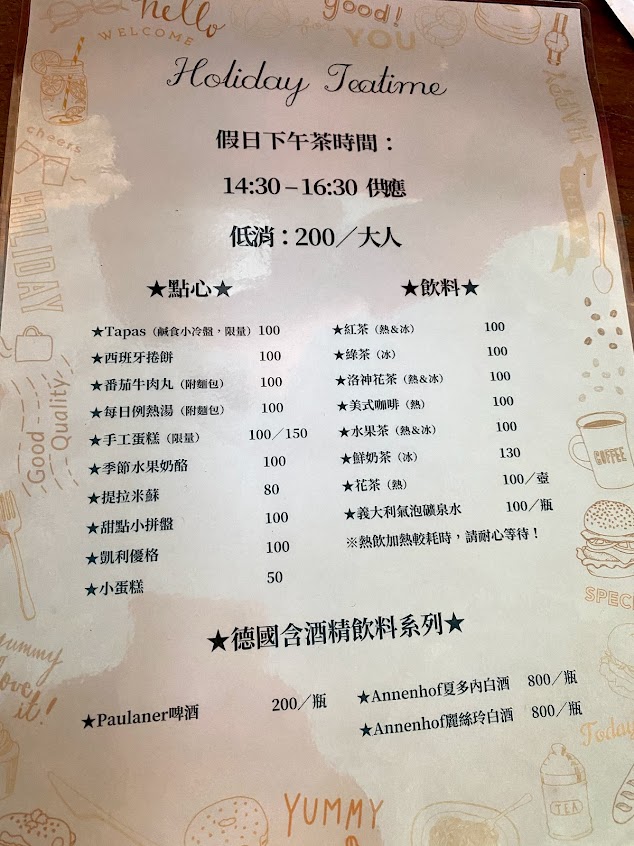 hello
WELCOME
good!
for
YOU
Holiday Teatime
cheers
HOLIDAY
HAPPY
RELAX
假日下午茶時間：
14:30–16:30 供應
低消：200／大人
★點心★
★Tapas（鹹食小冷盤，限量）100
★西班牙捲餅 100
★番茄牛肉丸（附麵包） 100
★每日例熱湯（附麵包） 100
★手工蛋糕（限量） 100／150
★季節水果奶酪 100
★提拉米蘇 80
★甜點小拼盤 100
★凱利優格 100
★小蛋糕 50
★飲料★
★紅茶（熱&冰） 100
★綠茶（冰） 100
★洛神花茶（熱&冰） 100
★美式咖啡（熱） 100
★水果茶（熱&冰） 100
★鮮奶茶（冰） 130
★花茶（熱） 100／壺
★義大利氣泡礦泉水 100／瓶
※熱飲加熱較耗時，請耐心等待！
Good Quality
COFFEE
SPECI
★德國含酒精飲料系列★
★Paulaner啤酒 200／瓶
★Annenhof夏多內白酒 800／瓶
★Annenhof麗絲玲白酒 800／瓶
yummy
love
it!
Today
TEA
YUMMY